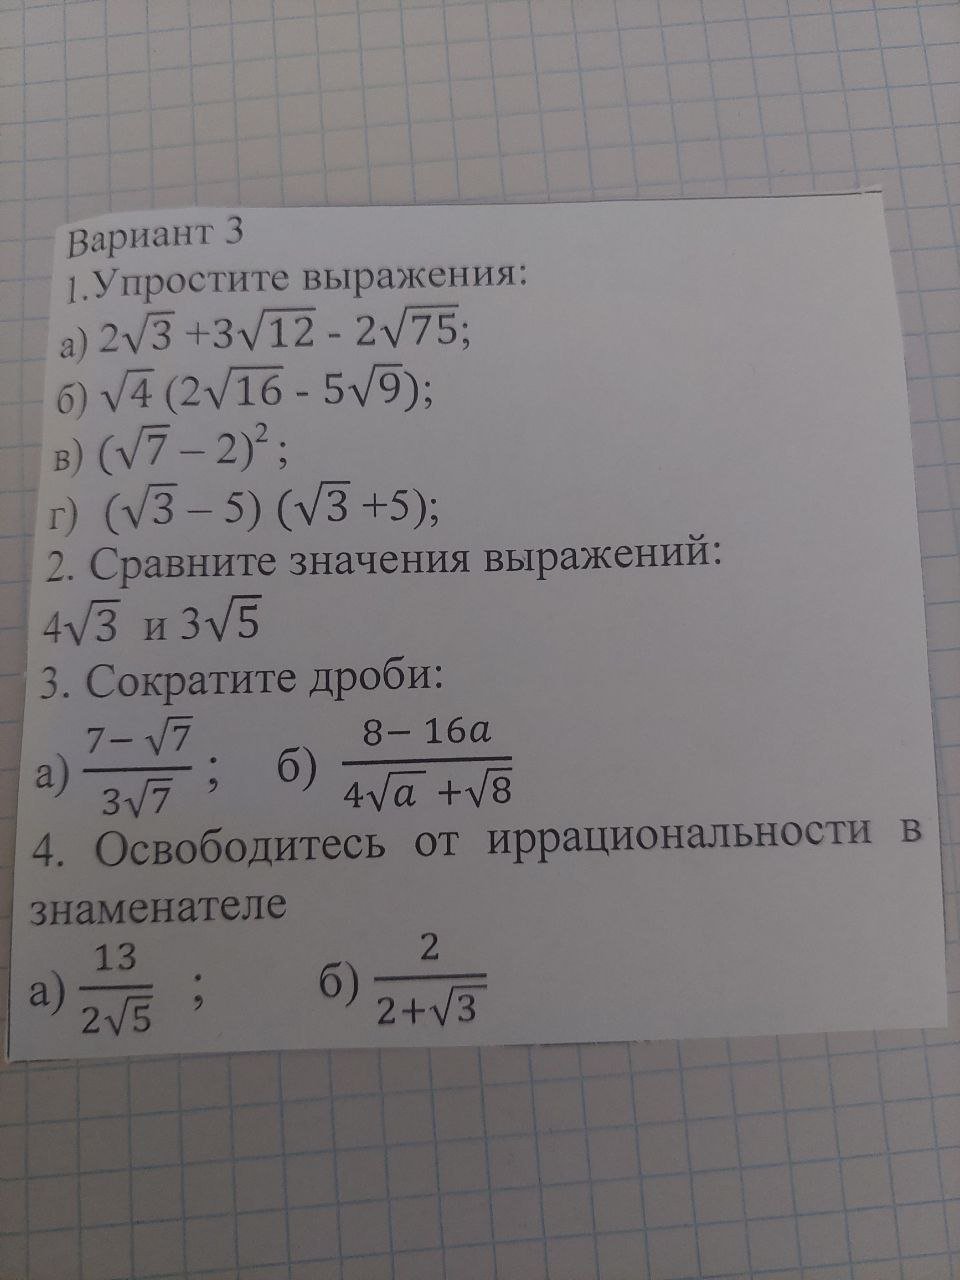 Вариант 3
1.Упростите выражения:
а) 2√3 +3√12 - 2√75;
б) √4 (2√16 - 5√9);
в) (√7 – 2)²;
г) (√3 – 5) (√3 +5);
2. Сравните значения выражений:
4√3 и 3√5
3. Сократите дроби:
а) (7− √7)/(3√7) ; б) (8− 16a)/(4√a +√8)
4. Освободитесь от иррациональности в
знаменателе
а) 13/(2√5) ; б) 2/(2+√3)